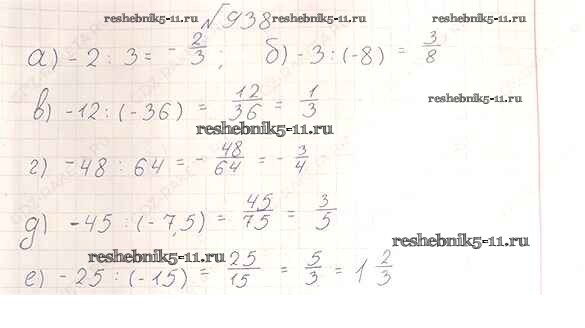 reshebnik5-11.ru №938 reshebnik5-11.ru
а) -2 : 3 = - 2/3 ; б) -3 : (-8) = 3/8
в) -12 : (-36) = 12/36 = 1/3 reshebnik5-11.ru
reshebnik5-11.ru
г) -48 : 64 = - 48/64 = - 3/4
д) -45 : (-7,5) = 45/75 = 3/5
reshebnik5-11.ru reshebnik5-11.ru
е) -25 : (-15) = 25/15 = 5/3 = 1 2/3